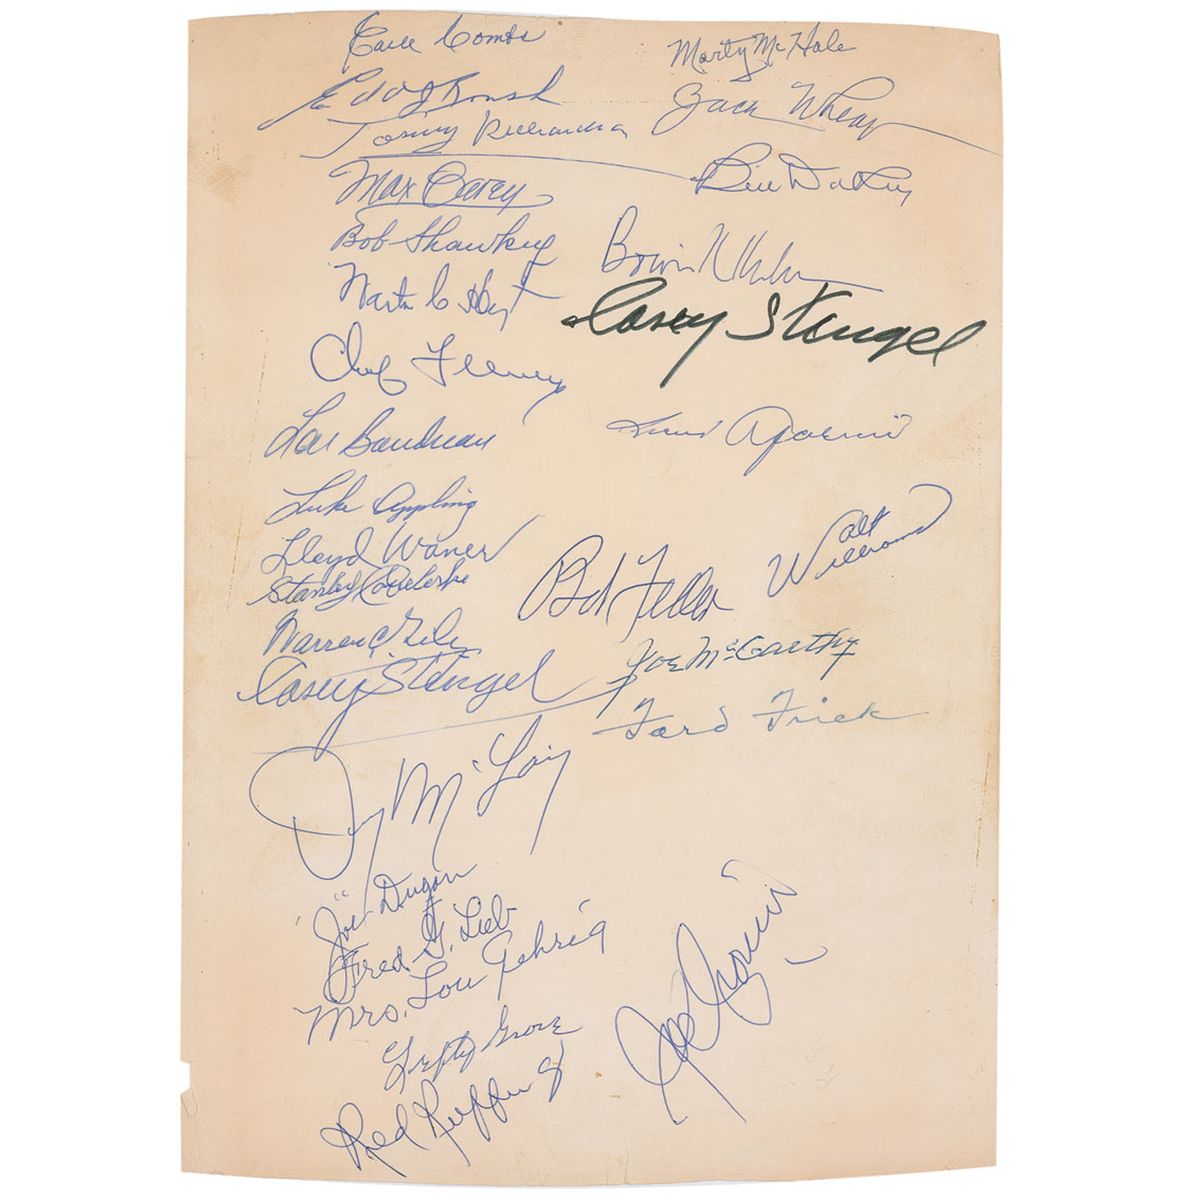 Earle Combs
Marty McHale
Edd J Roush
Jack
Tommy Richardson
Bill Dailey
Max Carey
Bob Shawkey
Waite C Hoyt
Casey Stengel
Chub Feeney
Lou Boudreau
Luis Aparicio
Luke Appling
Lloyd Waner
Stanley Coveleskie
Bob Feller
Walt Williams
Warren C. Giles
Joe McCarthy
Casey Stengel
Ford Frick
Denny McLain
"Joe" Dugan
Fred G. Lieb
Mrs. Lou Gehrig
Joe Cronin
Lefty Grove
Red Ruffing